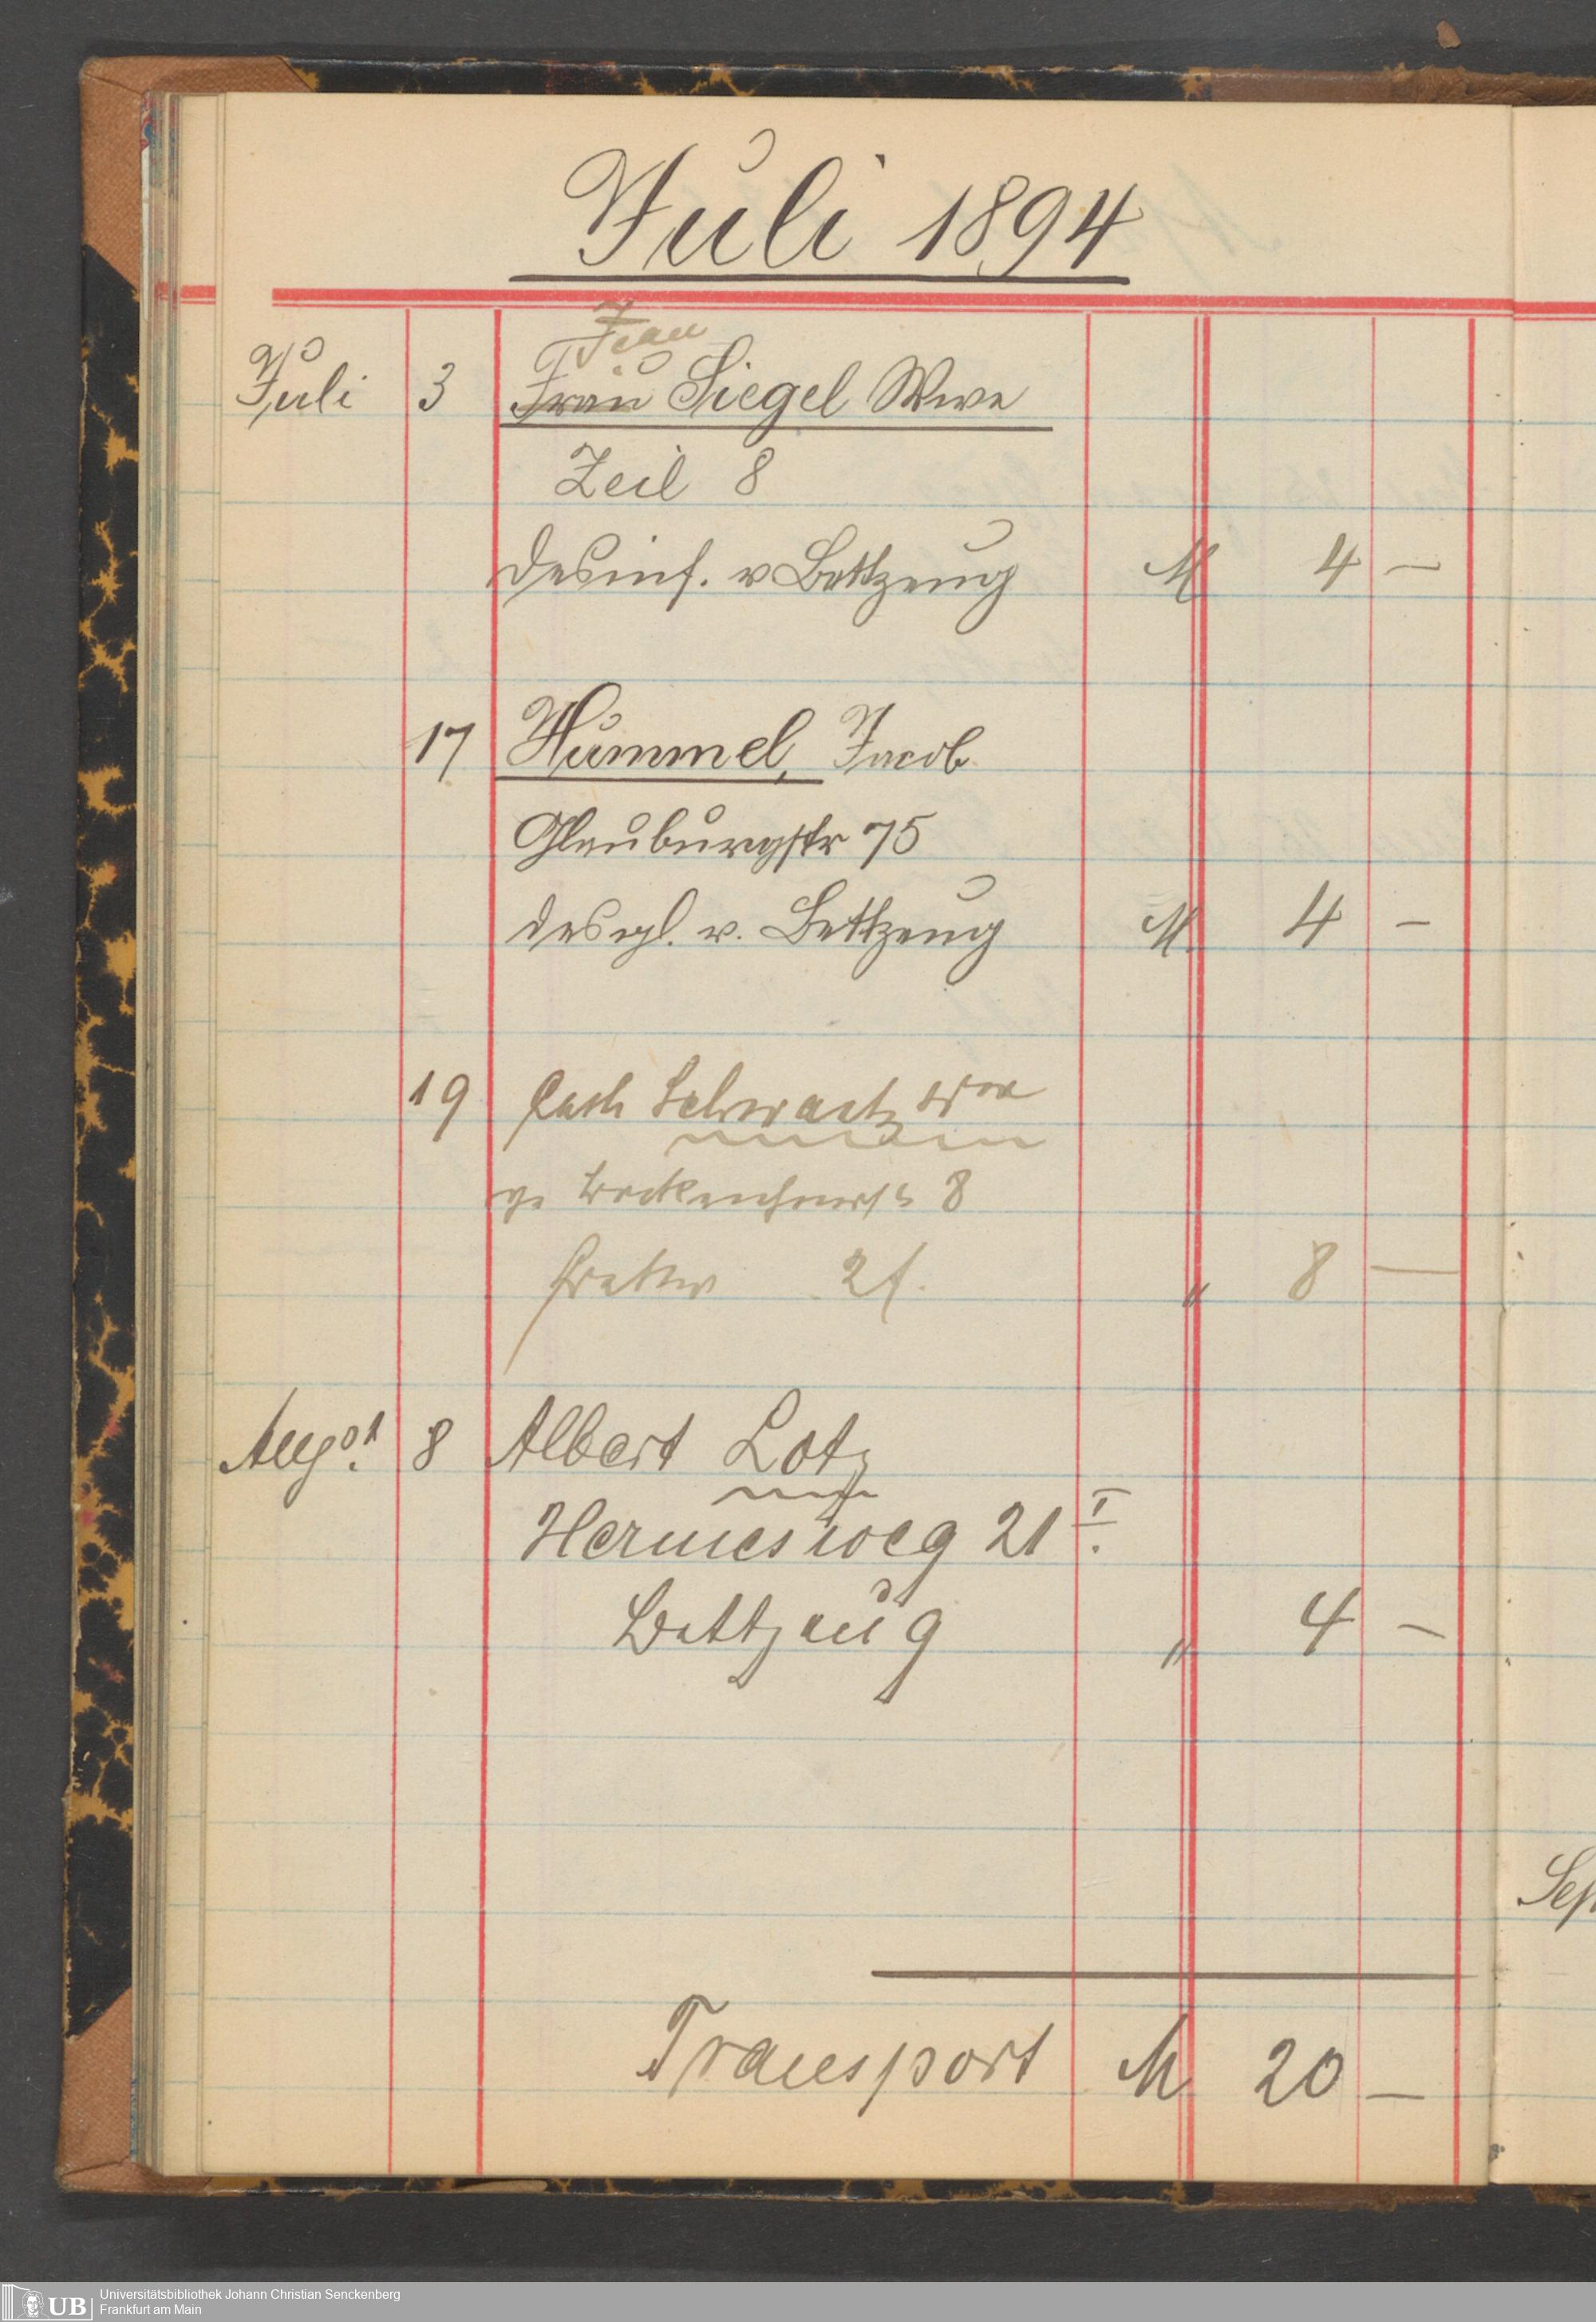 Juli 1894
Frau
Juli 3 Frau Siegel Wwe
Zeil 8
Desinf. v Bettzeug M 4 —
17 Hummel, Jacob
Glauburgstr 75
desgl. v. Bettzeug M. 4 —
19 Cath Schwartz Wwe
gr Bockenheimerstr 8
2 f. " 8 —
Aug. 8 Albert Lotz
Hermesweg 21 I.
Bettzeug " 4 —
Transport M 20 —
Sep
UB
Universitätsbibliothek Johann Christian Senckenberg
Frankfurt am Main